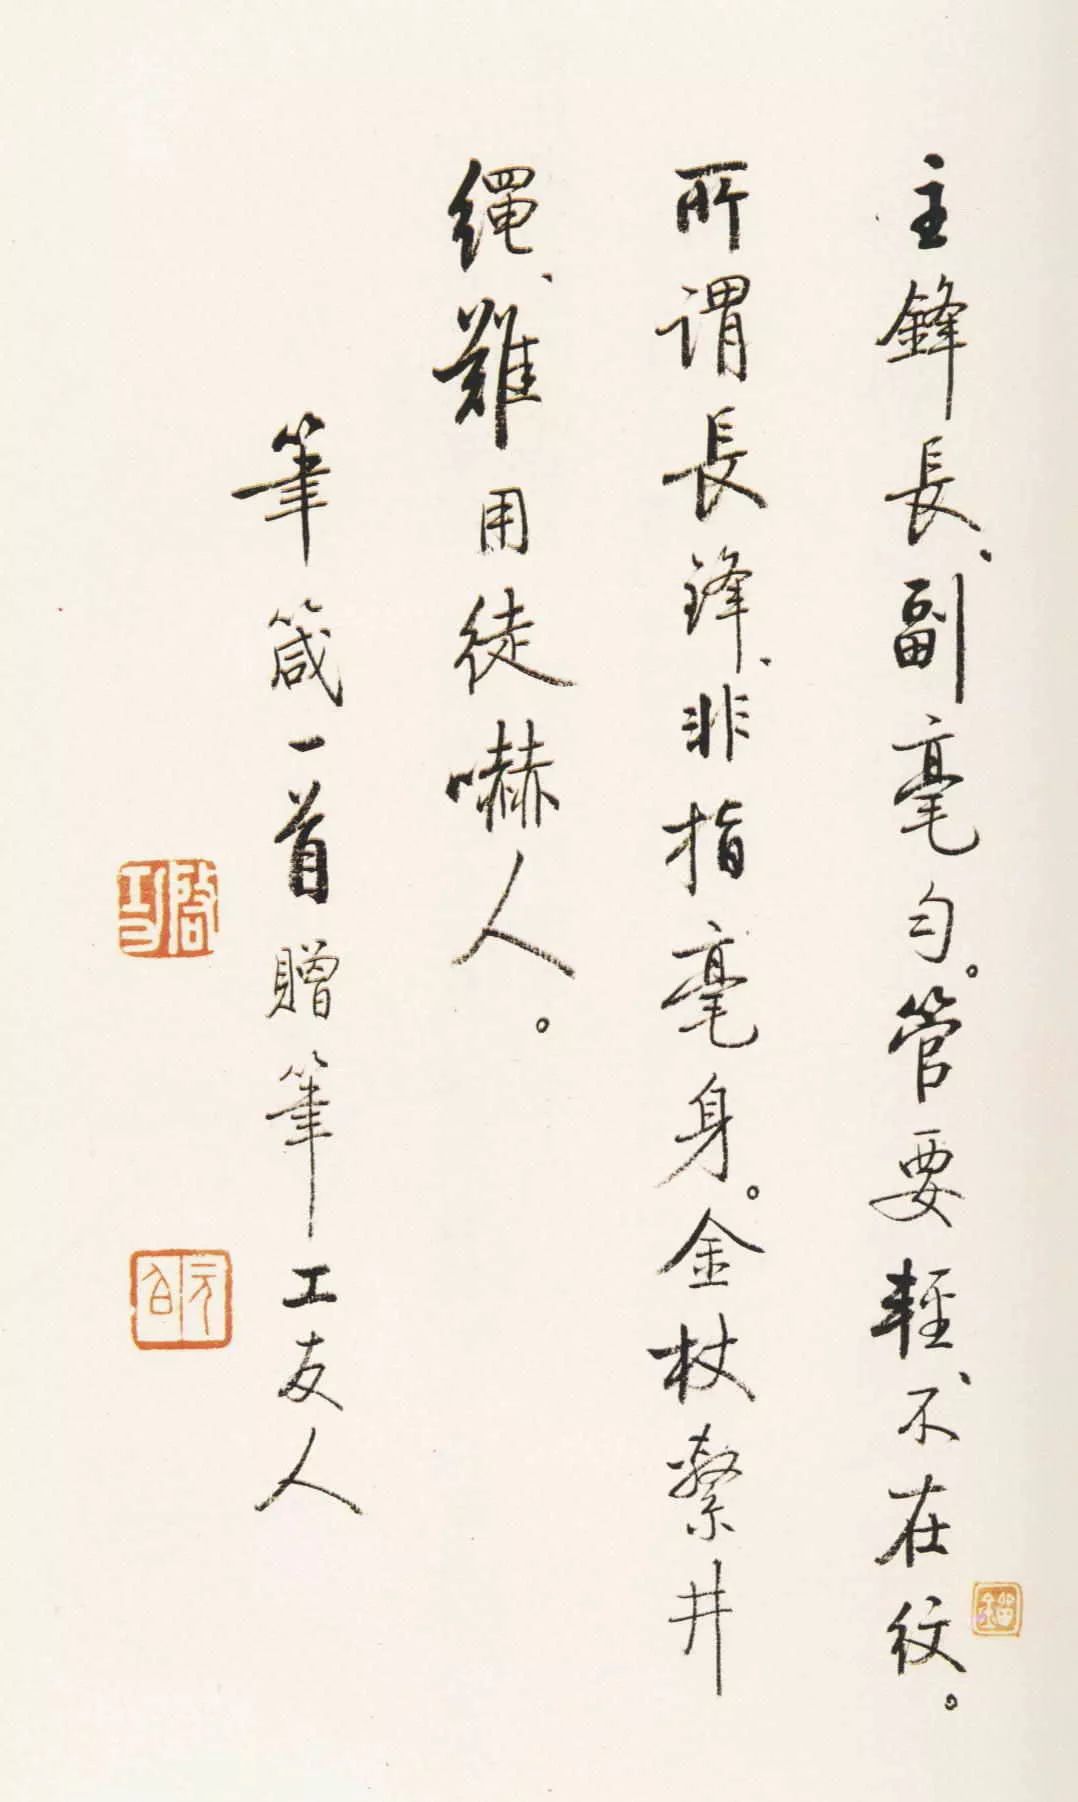 主鋒長、副毫勻。管要輕、不在紋。
所謂長鋒、非指毫身。金杖繫井
繩、難用徒嚇人。
筆箴一首贈筆工友人
啟功
元白